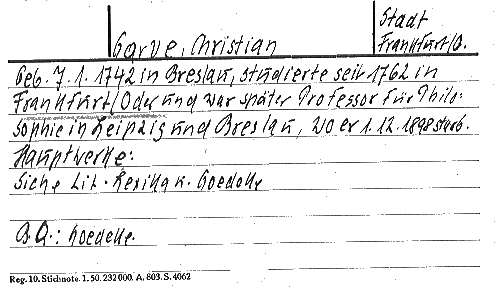 Stadt
Garve, Christian Frankfurt/O.
Geb. 7. 1. 1742 in Breslau, studierte seit 1762 in
Frankfurt/Oder und war später Professor für Philo-
sophie in Leipzig und Breslau, wo er 1. 12. 1898 starb.
Hauptwerke:
Siehe Lit. Lexikon Goedeke
B.Q.: Goedeke.
Reg. 10. Stichnote. 1. 50. 232000. A. 803. S. 4062